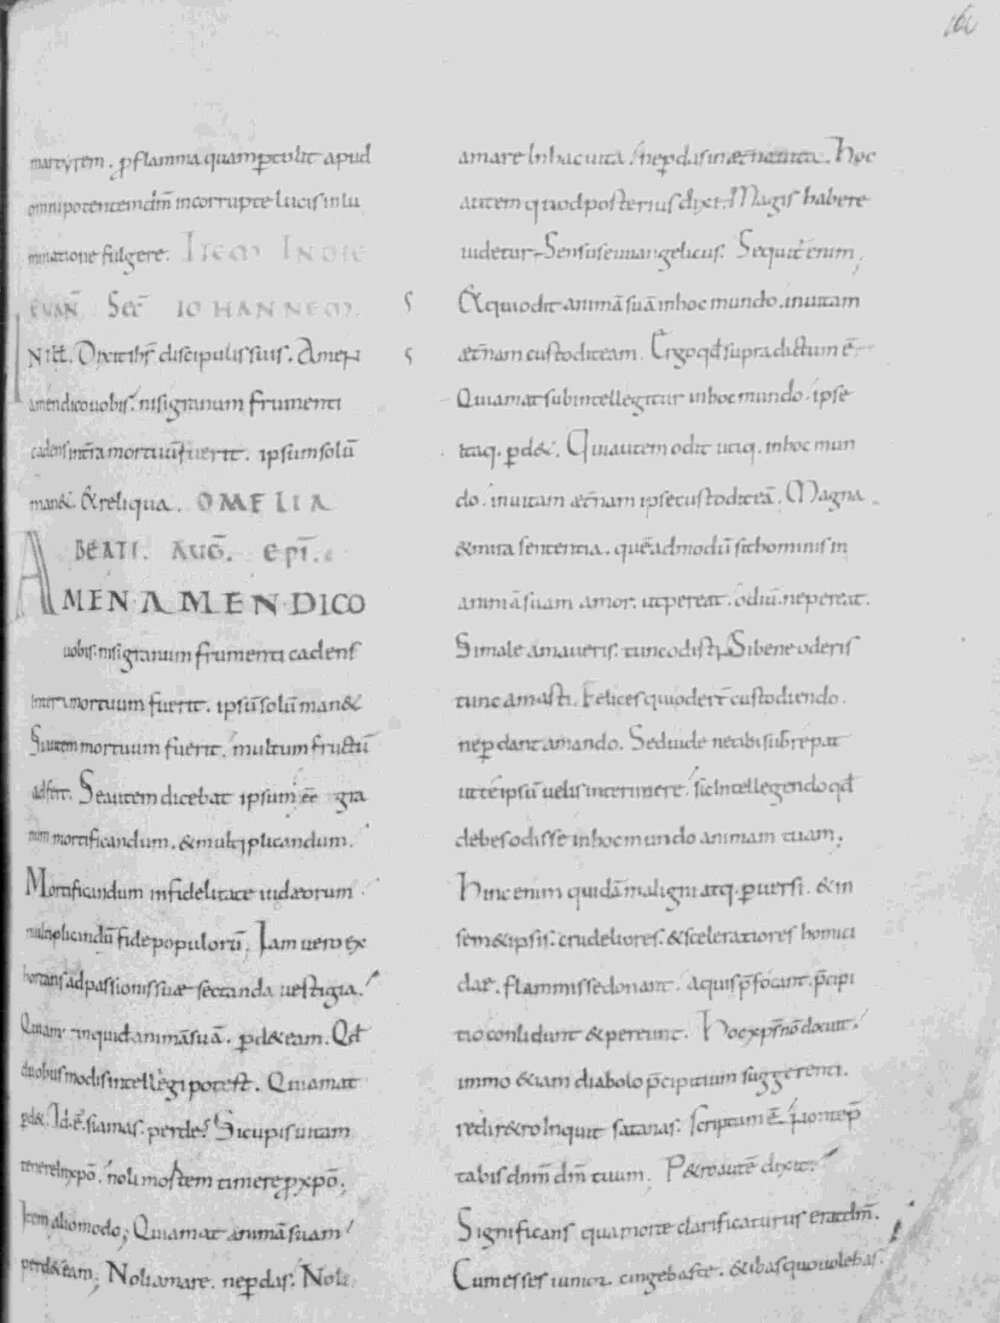 161
martyrem. ꝓ flamma quam ꝑtulit apud
omnipotentem dm̄ in corrupte lucis inlu
minatione fulgere. ITEM IN DIE
EVAN̄ SEC̄ IOHANNEM.
IN ILL̄. Dixit ihs̄ discipulis suis. Amen
amen dico uobis. nisi granum frumenti
cadens in trā mortuū fuerit. ipsum solū
man&. & reliqua. OMELIA
BEATI. AUḠ. EPĪ.
AMEN AMEN DICO
uobis. nisi granum frumenti cadens
in terra mortuum fuerit. ipsū solū man&
Si autem mortuum fuerit. multum fructū
adfert. Se autem dicebat ipsum eē gra
num mortificandum. & multiplicandum.
Mortificandum infidelitate iudæorum.
multiplicandū fide populorū; Iam uero ex
hortans ad passionis suæ sectanda uestigia.
Qui amat inquid animā suā. ꝑd& eam. Qđ
duobus modis intellegi potest. Qui amat
ꝑd&. Id. ē. si amas. perdes. Si cupis uitam
tenere in xp̄o. noli mortem timere ꝓ xp̄o;
Item alio modo; Qui amat animā suam
perd& eam; Noli amare. ne ꝑdas. Noli
amare in hac uita. ne ꝑdas in æt̄na uita. Hoc
autem quod posterius dixi. Magis habere
uidetur sensus euuangelicus. Sequit̄ enim;
Et qui odit animā suā in hoc mundo. in uitam
æt̄nam custodit eam. Ergo qđ supra dictum ē
Qui amat subintellegitur in hoc mundo. ipse
itaq. ꝑd&. Qui autem odit utiq. in hoc mun
do. in uitam æt̄nam ipse custodit eā. Magna
& mira sententia. quēadmodū sit hominis in
animā suam amor. ut pereat. odiū. ne pereat.
Si male amaueris. tunc odisti. Si bene oderis
tunc amasti. Felices qui oder̄ custodiendo.
ne ꝑdant amando. Sed uide ne tibi subrepat
ut te ipsū uelis interimere. sic intellegendo qđ
debes odisse in hoc mundo animam tuam;
Hinc enim quidā maligni atq. ꝑuersi. & in
sem& ipsis. crudeliores. & sceleratiores homici
dæ. flammis se donant. aquis p̄focant. p̄cipi
tio conlidunt & pereunt. Hoc xp̄s nō docuit.
immo &iam diabolo p̄cipitium suggerenti.
redi r&ro inquit satanas. scriptum ē. non temp̄
tabis dnm̄ dm̄ tuum. P&ro autē dixit.
Significans qua morte clarificaturus erat dm̄.
Cum esses iunior. cingebas te. & ibas quo uolebas.